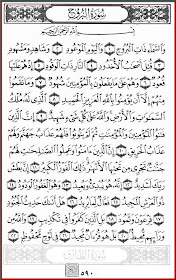 سُورَةُ البُرُوجِ
بِسْمِ ٱللَّهِ ٱلرَّحْمَٰنِ ٱلرَّحِيمِ
وَٱلسَّمَآءِ ذَاتِ ٱلْبُرُوجِ ١ وَٱلْيَوْمِ ٱلْمَوْعُودِ ٢ وَشَاهِدٍ وَمَشْهُودٍ
٣ قُتِلَ أَصْحَٰبُ ٱلْأُخْدُودِ ٤ ٱلنَّارِ ذَاتِ ٱلْوَقُودِ ٥ إِذْ هُمْ عَلَيْهَا
قُعُودٌ ٦ وَهُمْ عَلَىٰ مَا يَفْعَلُونَ بِٱلْمُؤْمِنِينَ شُهُودٌ ٧ وَمَا نَقَمُوا۟
مِنْهُمْ إِلَّآ أَن يُؤْمِنُوا۟ بِٱللَّهِ ٱلْعَزِيزِ ٱلْحَمِيدِ ٨ ٱلَّذِى لَهُۥ
مُلْكُ ٱلسَّمَٰوَٰتِ وَٱلْأَرْضِ ۚ وَٱللَّهُ عَلَىٰ كُلِّ شَىْءٍ شَهِيدٌ ٩ إِنَّ ٱلَّذِينَ
فَتَنُوا۟ ٱلْمُؤْمِنِينَ وَٱلْمُؤْمِنَٰتِ ثُمَّ لَمْ يَتُوبُوا۟ فَلَهُمْ عَذَابُ جَهَنَّمَ
وَلَهُمْ عَذَابُ ٱلْحَرِيقِ ١٠ إِنَّ ٱلَّذِينَ ءَامَنُوا۟ وَعَمِلُوا۟ ٱلصَّٰلِحَٰتِ لَهُمْ
جَنَّٰتٌ تَجْرِى مِن تَحْتِهَا ٱلْأَنْهَٰرُ ۚ ذَٰلِكَ ٱلْفَوْزُ ٱلْكَبِيرُ ١١ إِنَّ بَطْشَ
رَبِّكَ لَشَدِيدٌ ١٢ إِنَّهُۥ هُوَ يُبْدِئُ وَيُعِيدُ ١٣ وَهُوَ ٱلْغَفُورُ ٱلْوَدُودُ
١٤ ذُو ٱلْعَرْشِ ٱلْمَجِيدُ ١٥ فَعَّالٌ لِّمَا يُرِيدُ ١٦ هَلْ أَتَىٰكَ حَدِيثُ ٱلْجُنُودِ
١٧ فِرْعَوْنَ وَثَمُودَ ١٨ بَلِ ٱلَّذِينَ كَفَرُوا۟ فِى تَكْذِيبٍ ١٩ وَٱللَّهُ مِن
وَرَآئِهِم مُّحِيطٌۢ ٢٠ بَلْ هُوَ قُرْءَانٌ مَّجِيدٌ ٢١ فِى لَوْحٍ مَّحْفُوظٍۭ ٢٢
سُورَةُ الطَّارِقِ
٥٩٠